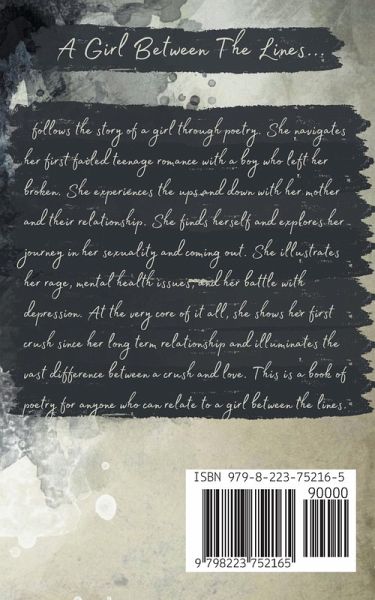 A Girl Between The Lines...
follows the story of a girl through poetry. She navigates
her first failed teenage romance with a boy who left her
broken. She experiences the ups and down with her mother
and their relationship. She finds herself and explores her
journey in her sexuality and coming out. She illustrates
her rage, mental health issues, and her battle with
depression. At the very core of it all, she shows her first
crush since her long term relationship and illuminates the
vast difference between a crush and love. This is a book of
poetry for anyone who can relate to a girl between the lines.
ISBN 979-8-223-75216-5
90000
9 798223 752165